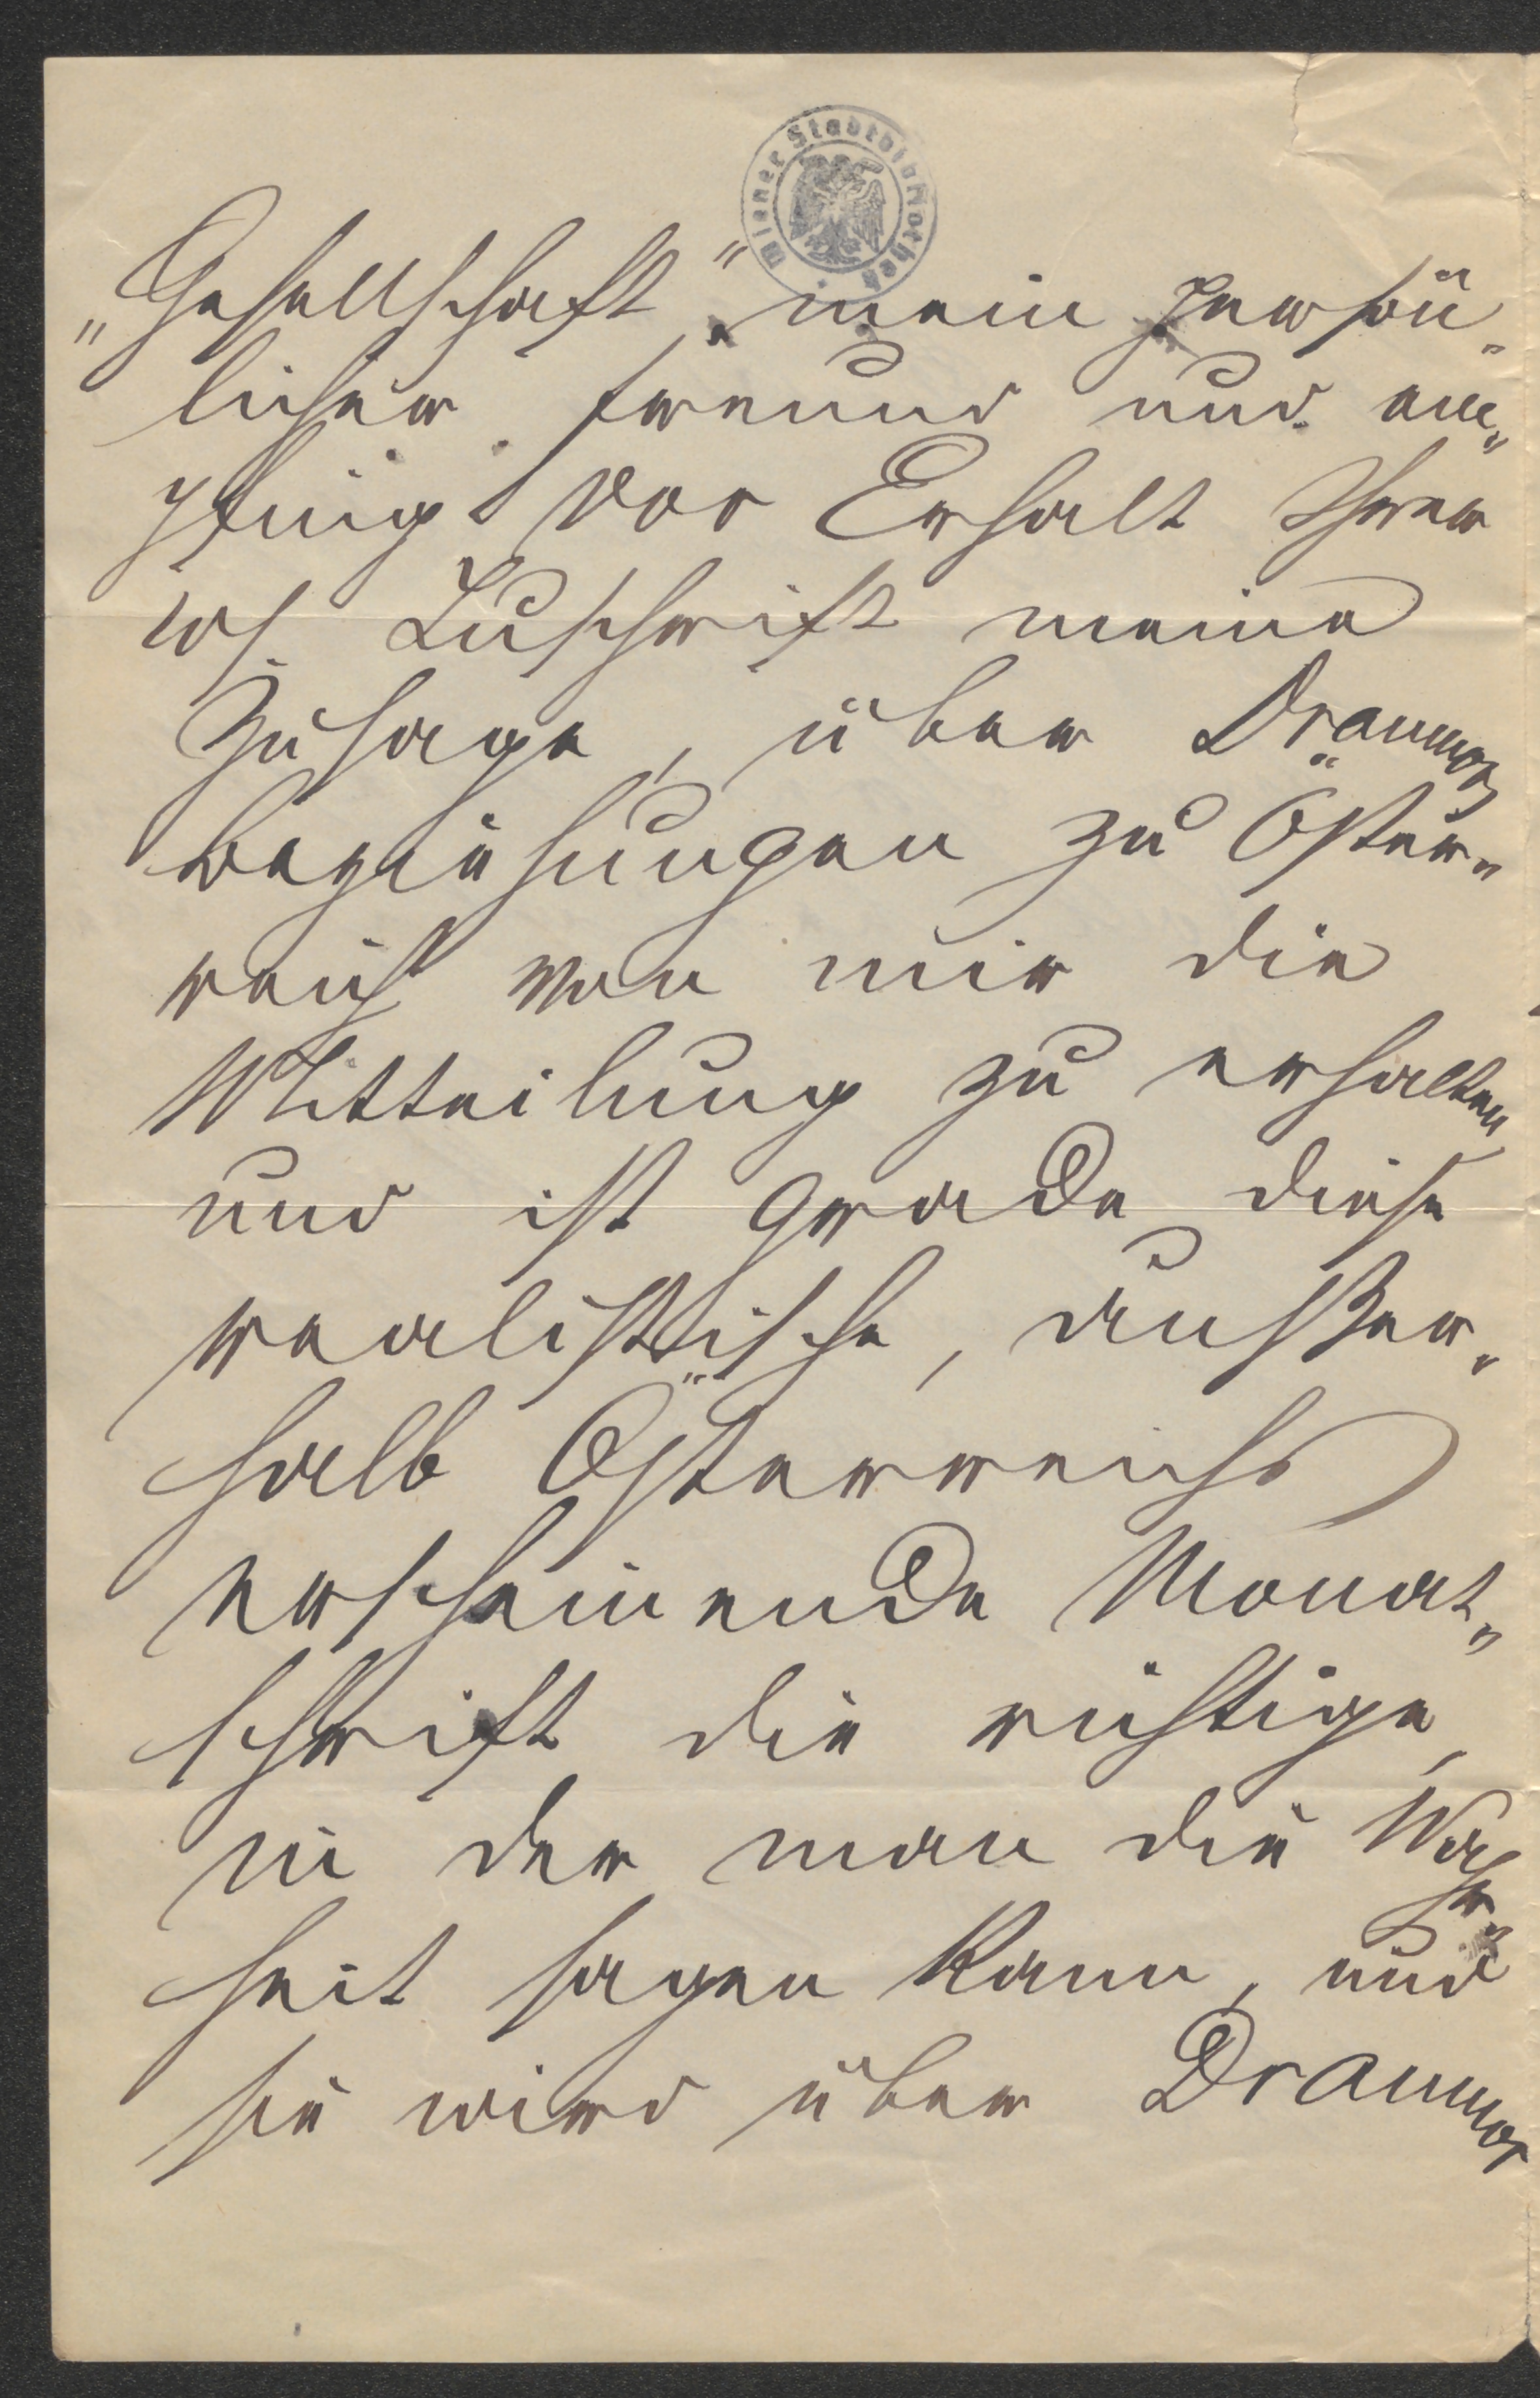 Wiener Stadtbibliothek
„Gesellschaft“, mein persön-
licher Freund und em-
pfing vor Erhalt Ihrer
w. Zuschrift meine
Zusage, über Dranmors
Beziehungen zu Öster-
reich von mir die
Mitteilung zu erhalten
und ist grade diese
realistische, außer-
halb Österreichs
erscheinende Monat-
schrift die richtige,
in der man die Wahr-
heit sagen kann, und
sie wird über Dranmor